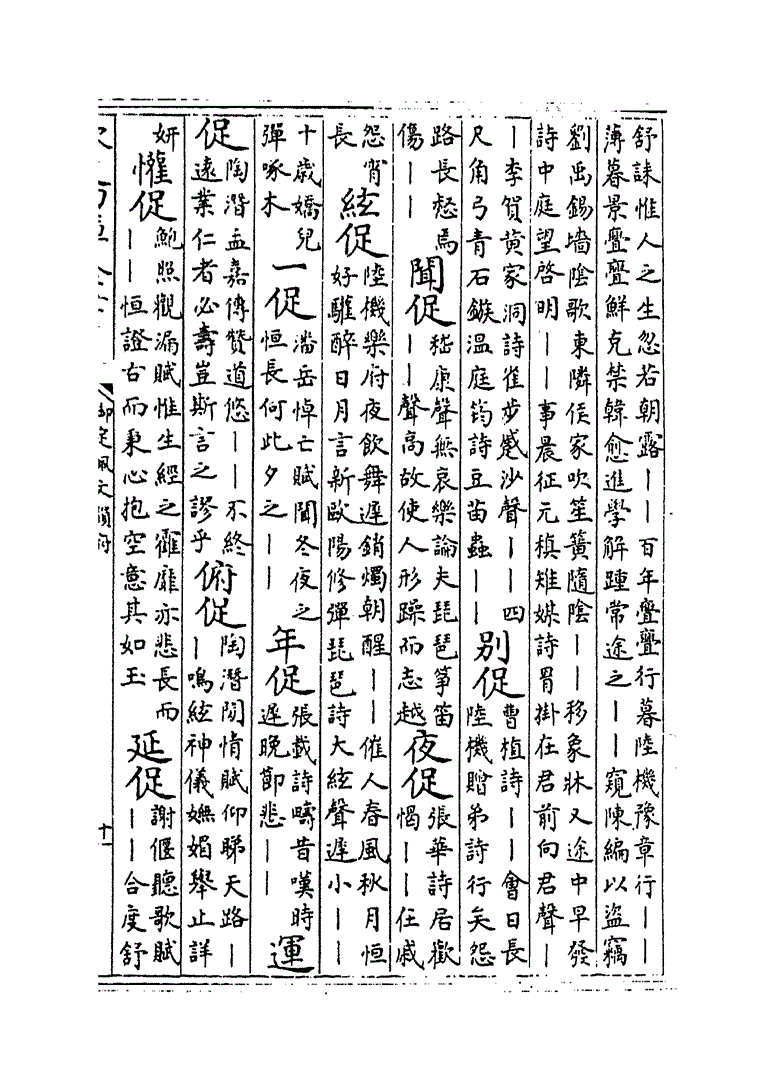 舒誄惟人之生忽若朝露丨丨百年亹亹行暮陸機豫章行丨丨
薄暮景亹亹鮮克禁韓愈進學解踵常途之丨丨窺陳編以盜竊
劉禹錫墻陰歌東隣侯家吹笙簧隨陰丨丨移象牀又途中早發
詩中庭望啓明丨丨事晨征元稹雉媒詩罥掛在君前向君聲丨
丨李賀黃家洞詩雀步蹙沙聲丨丨四
尺角弓青石鏃溫庭筠詩豆苗蟲丨丨
別促
曹植詩丨丨會日長
陸機贈弟詩行矣怨
路長惄焉
傷丨丨
聞促
嵇康聲無哀樂論夫琵琶箏笛
丨丨聲高故使人形躁而志越
夜促
張華詩居歡
愒丨丨在戚
怨宵
長
絃促
陸機樂府夜飲舞遲銷燭朝醒丨丨催人春風秋月恒
好驩醉日月言新歐陽修彈琵琶詩大絃聲遲小丨丨
十歲嬌兒
彈啄木
一促
潘岳悼亡賦聞冬夜之
恒長何此夕之丨丨
年促
張載詩疇昔嘆時
遲晚節悲丨丨
運
促
陶潛孟嘉傳贊道悠丨丨不終
遠業仁者必壽豈斯言之謬乎
俯促
陶潛閒情賦仰睇天路丨
丨鳴絃神儀嫵媚舉止詳
妍
懽促
鮑照觀漏賦惟生經之霍靡亦悲長而
丨丨恒證古而秉心抱空意其如玉
延促
謝偃聽歌賦
丨丨合度舒
御定佩文韻府
十一